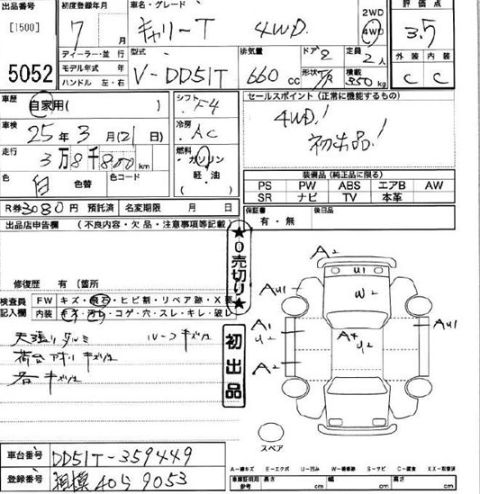 出品番号 初度登録年月 車名・グレード 評価点
[1500] 7年 月 キャリーT 4WD 2WD 4WD 3.5
ディーラー・並行 型式 排気量 ドア 定員 外装 内装
5052 モデル年式 年 V-DD51T 660cc 2 2人 C C
ハンドル 左・右 形状 積載 350kg
車歴 自家用( ) シフト F4 セールスポイント(正常に機能するもの)
車検 25年3月(21日) 冷房 AC 4WD!
走行 3万8千800km 燃料 ガソリン 軽・油 初出品!
色 白 色替 色コード 装備品(純正品に限る)
PS PW ABS エアB AW
SR ナビ TV 本革
R券 3080円 預託済 名変期限 月 日 保証書 有・無 後日品
出品店申告欄 (不良内容・欠品・注意事項等記載)
★0売切り★
初出品
修復歴 有( )箇所
検査員記入欄 FW キズ・飛石・ヒビ割・リペア跡・X要
内装 キズ・汚れ・コゲ・穴・スレ・キレ・破レ
天張りタルミ ルーフキズ
荷台
各キズ
A2
U1
AU1 W2 AU1
A1 A4 U2 A1 U2
A2
スペア
車台番号 DD51T-359449
登録番号 相模 40 う 9053
A-線キズ E-エクボ U-凹み W-補修跡 S-サビ C-腐食 XX-取替済
車両寸法 長さ cm 幅 cm 高さ cm